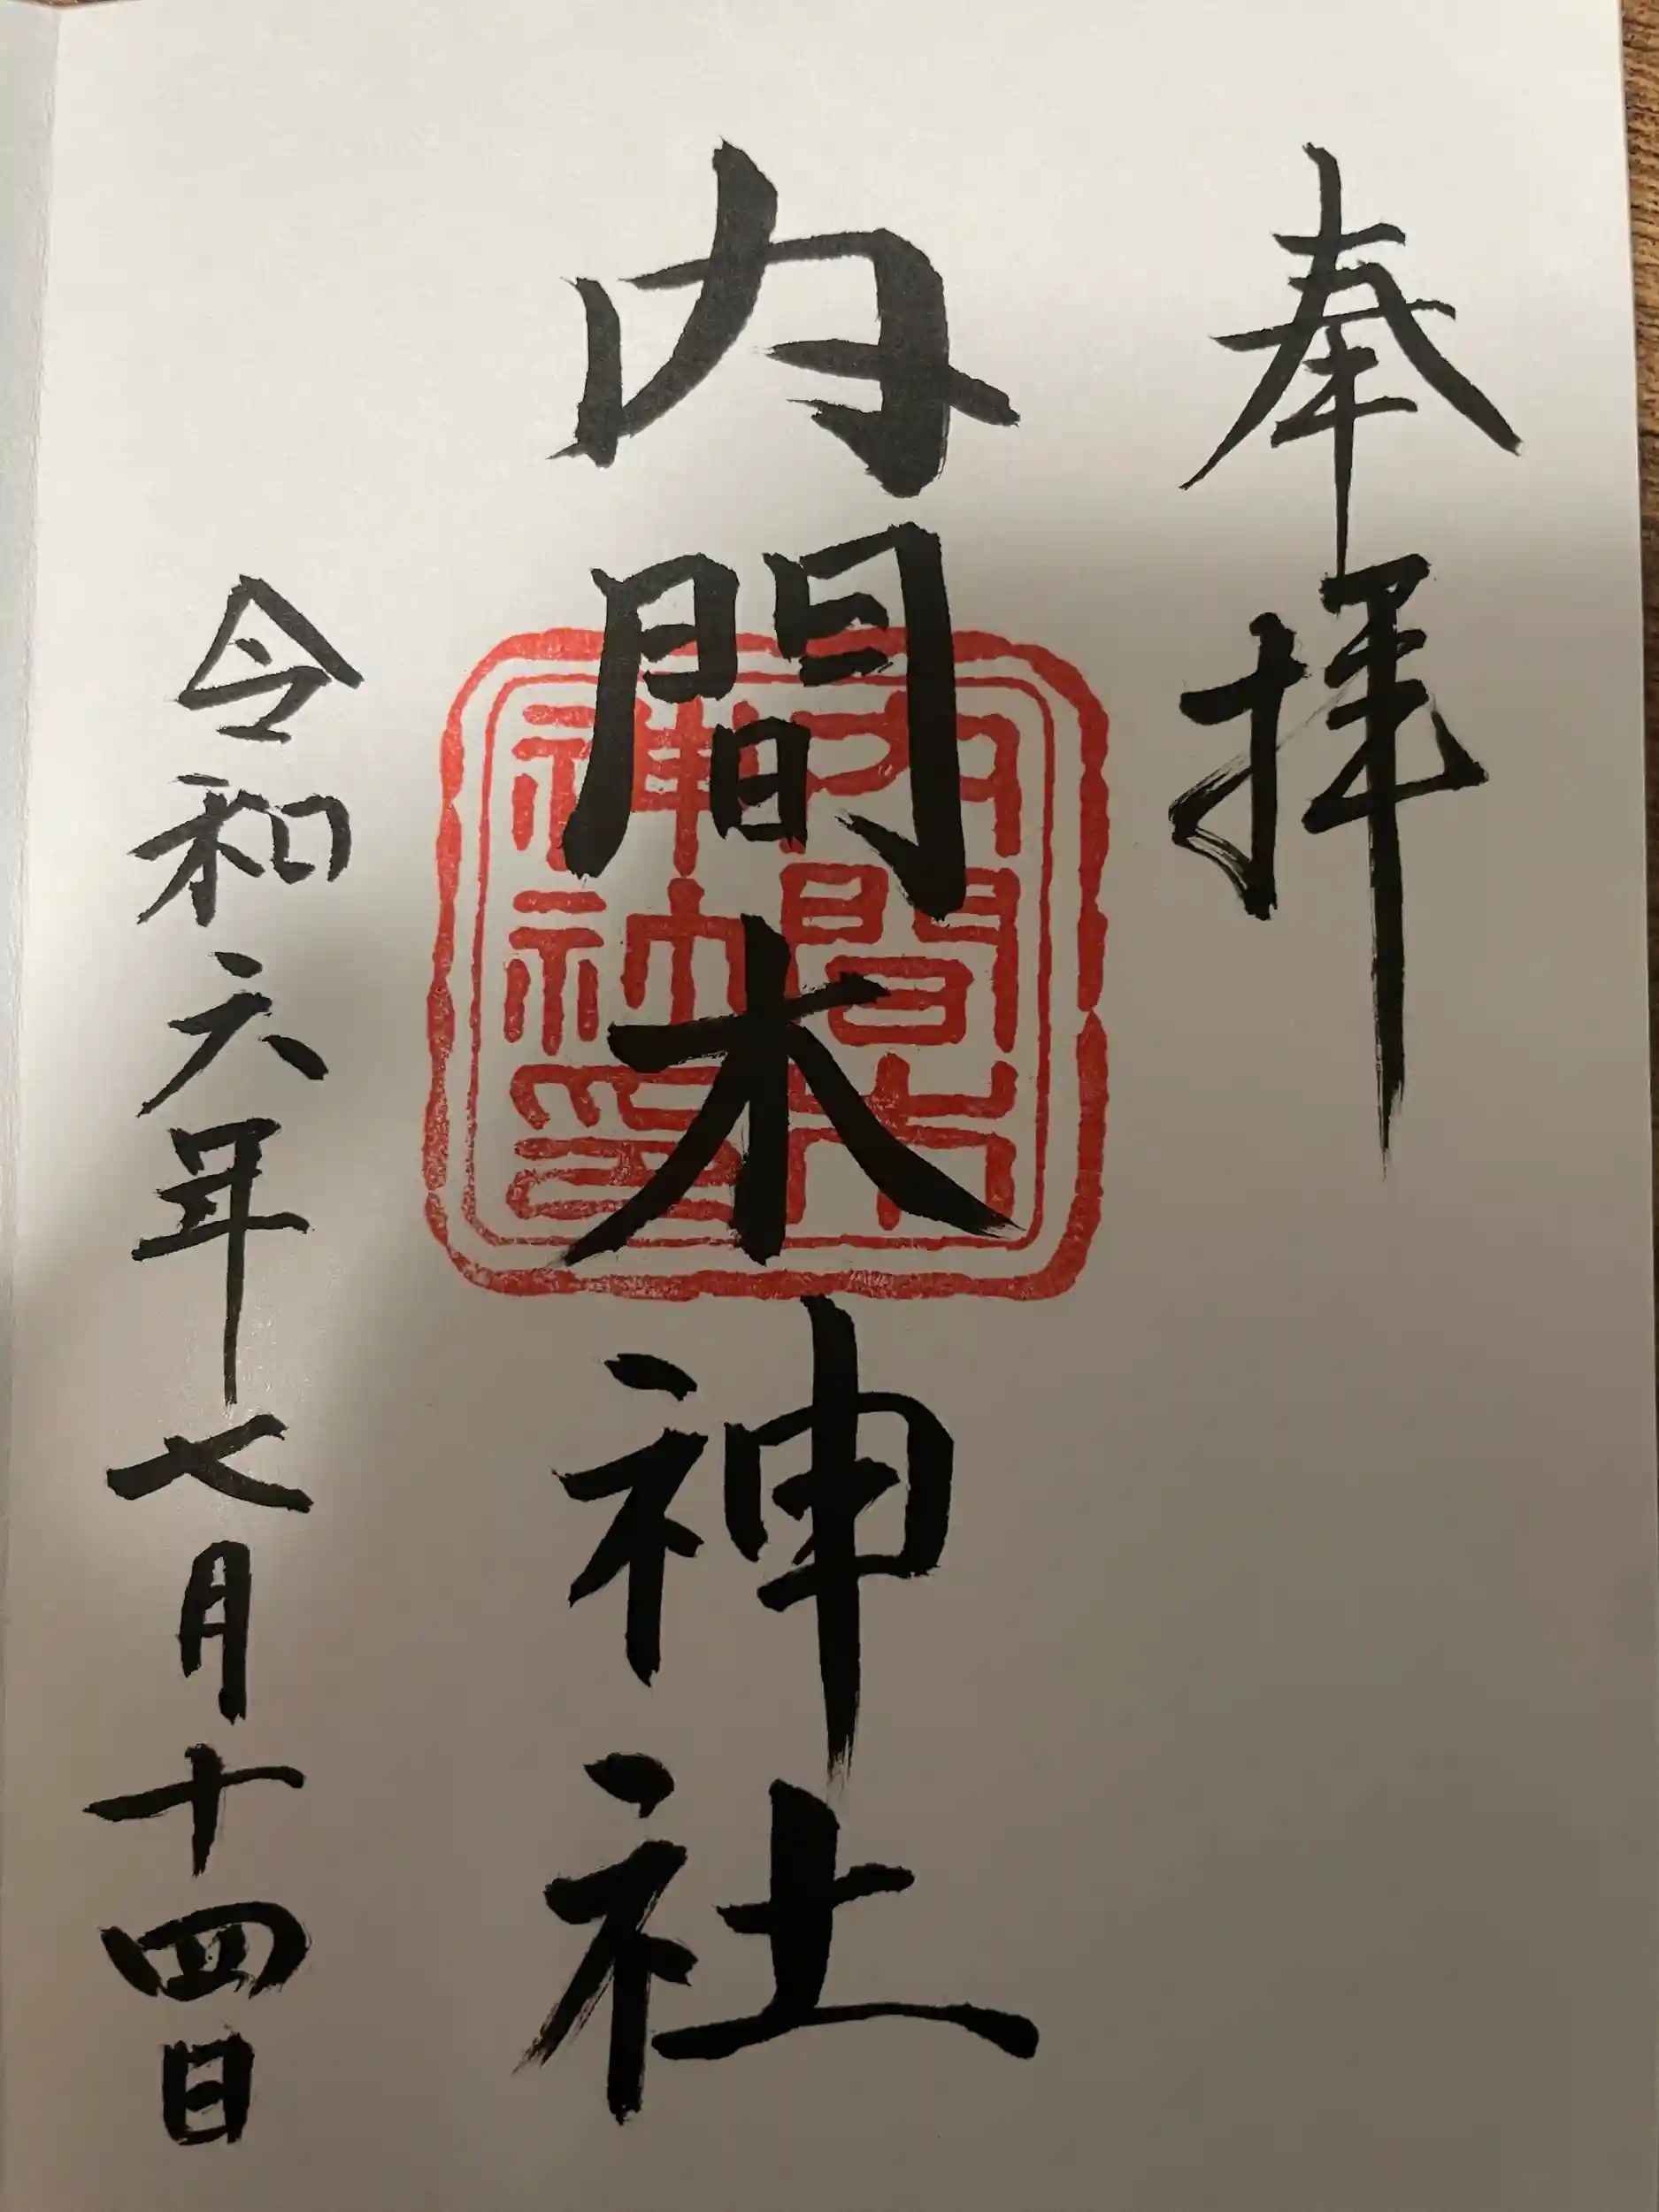 奉拝
内間木神社
内間木神社印
令和六年七月十四日